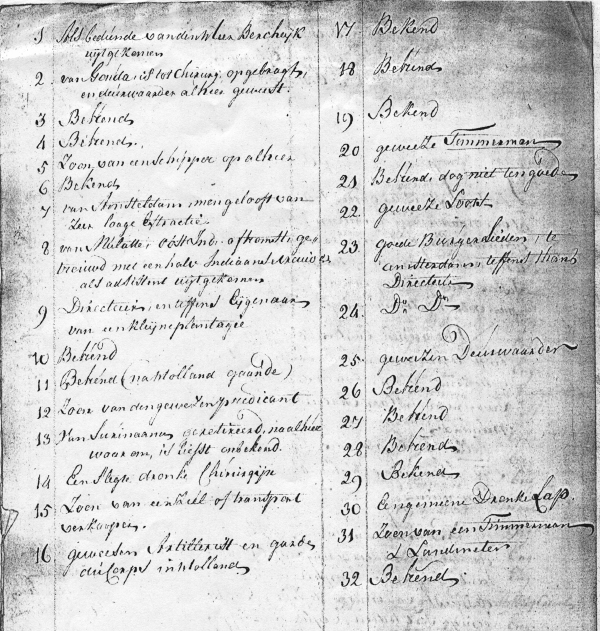 1 Als bediende van den Heer Bercheijk
uijtgekomen
2. van Gouda, is tot Chirurg: opgebragt,
en deurwaarder alhier geweest.
3 Bekend
4 Bekend.
5 Zoon van een schipper op alhier
6 Bekend
7 van Amsteldam, men gelooft van
zeer laage Extractie
8 van Oost Ind: afkomst, ge-
trouwd met een halve Indiaansche
als adsistent uijtgekomen
9 Directeur, en teffens Eijgenaar
van een kleijne plantagie
10 Bekend
11 Bekend (na Holland gaande)
12 Zoon van den gewezen predicant
13 van Suriname geretireerd, na alhier
waarom, is liefst onbekend.
14 Een slegte dronke Chirurgijn
15 Zoon van een Zeel of transport
verkooper.
16 gewesen Artillerist en garde
du Corps in Holland
17 Bekend
18 Bekend
19 Bekend
20 geweeze Timmerman
21 Bekend, dog niet ten goede
22. geweeze Loots
23. goede Burgerlieden, te
Amsterdam, teffens thans
Directeur
24. Do. Do.
25. gewezen Deurwaarder
26 Bekend
27 Bekend
28 Bekend
29 Bekend
30 Een gemeene Dronke Lap.
31 Zoon van een Timmerman
& Landmeter
32 Bekend